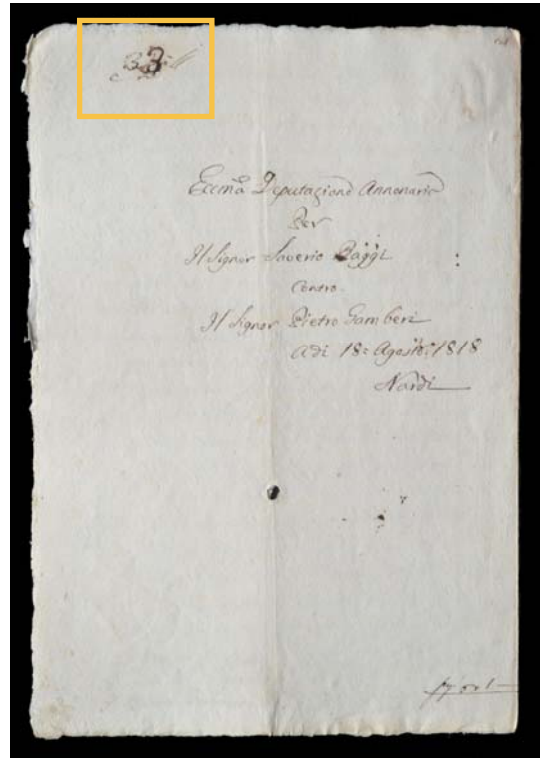 33
Eccma Deputazione Annonaria
Per
Il Signor Saverio Baggi
Contro
Il Signor Pietro Gamberi
Adi 18: Agosto 1818
Nardi